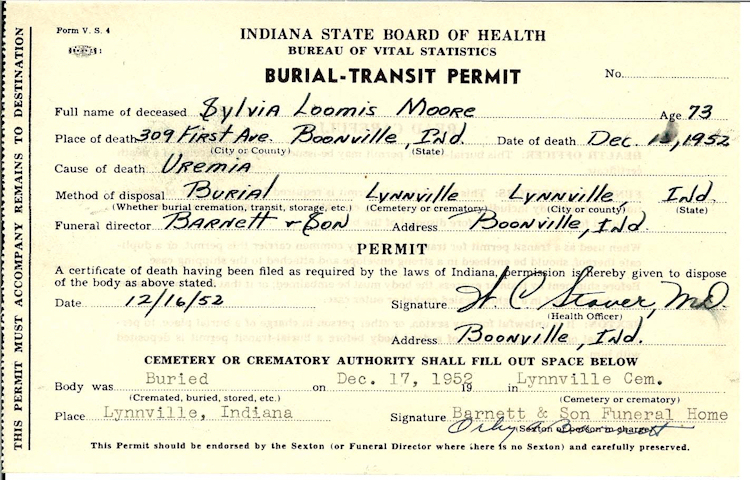 Form V. S. 4
INDIANA STATE BOARD OF HEALTH
BUREAU OF VITAL STATISTICS
BURIAL-TRANSIT PERMIT
No.
Full name of deceased Sylvia Loomis Moore Age 73
Place of death 309 First Ave. Boonville, Ind. Date of death Dec. , 1952
(City or County) (State)
Cause of death Uremia
Method of disposal Burial Lynnville Lynnville, Ind.
(Whether burial cremation, transit, storage, etc.) (Cemetery or crematory) (City or county) (State)
Funeral director Barnett & Son Address Boonville, Ind.
PERMIT
A certificate of death having been filed as required by the laws of Indiana, permission is hereby given to dispose
of the body as above stated.
Date 12/16/52 Signature W. C. Stover, MD.
(Health Officer)
Address Boonville, Ind.
CEMETERY OR CREMATORY AUTHORITY SHALL FILL OUT SPACE BELOW
Body was Buried on Dec. 17, 1952 19 in Lynnville Cem.
(Cremated, buried, stored, etc.) (Cemetery or crematory)
Place Lynnville, Indiana Signature Barnett & Son Funeral Home
(Sexton or person in charge)
This Permit should be endorsed by the Sexton (or Funeral Director where there is no Sexton) and carefully preserved.
THIS PERMIT MUST ACCOMPANY REMAINS TO DESTINATION